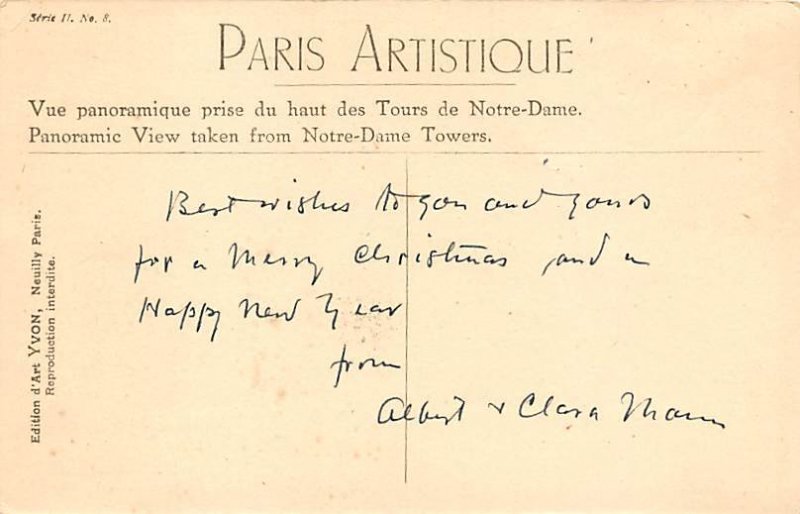 Série II. No. 8.
PARIS ARTISTIQUE
Vue panoramique prise du haut des Tours de Notre-Dame.
Panoramic View taken from Notre-Dame Towers.
Best wishes to you and yours
for a Merry Christmas and a
Happy New Year
from
Albert & Clara Mann
Edition d'Art YVON, Neuilly Paris.
Reproduction interdite.